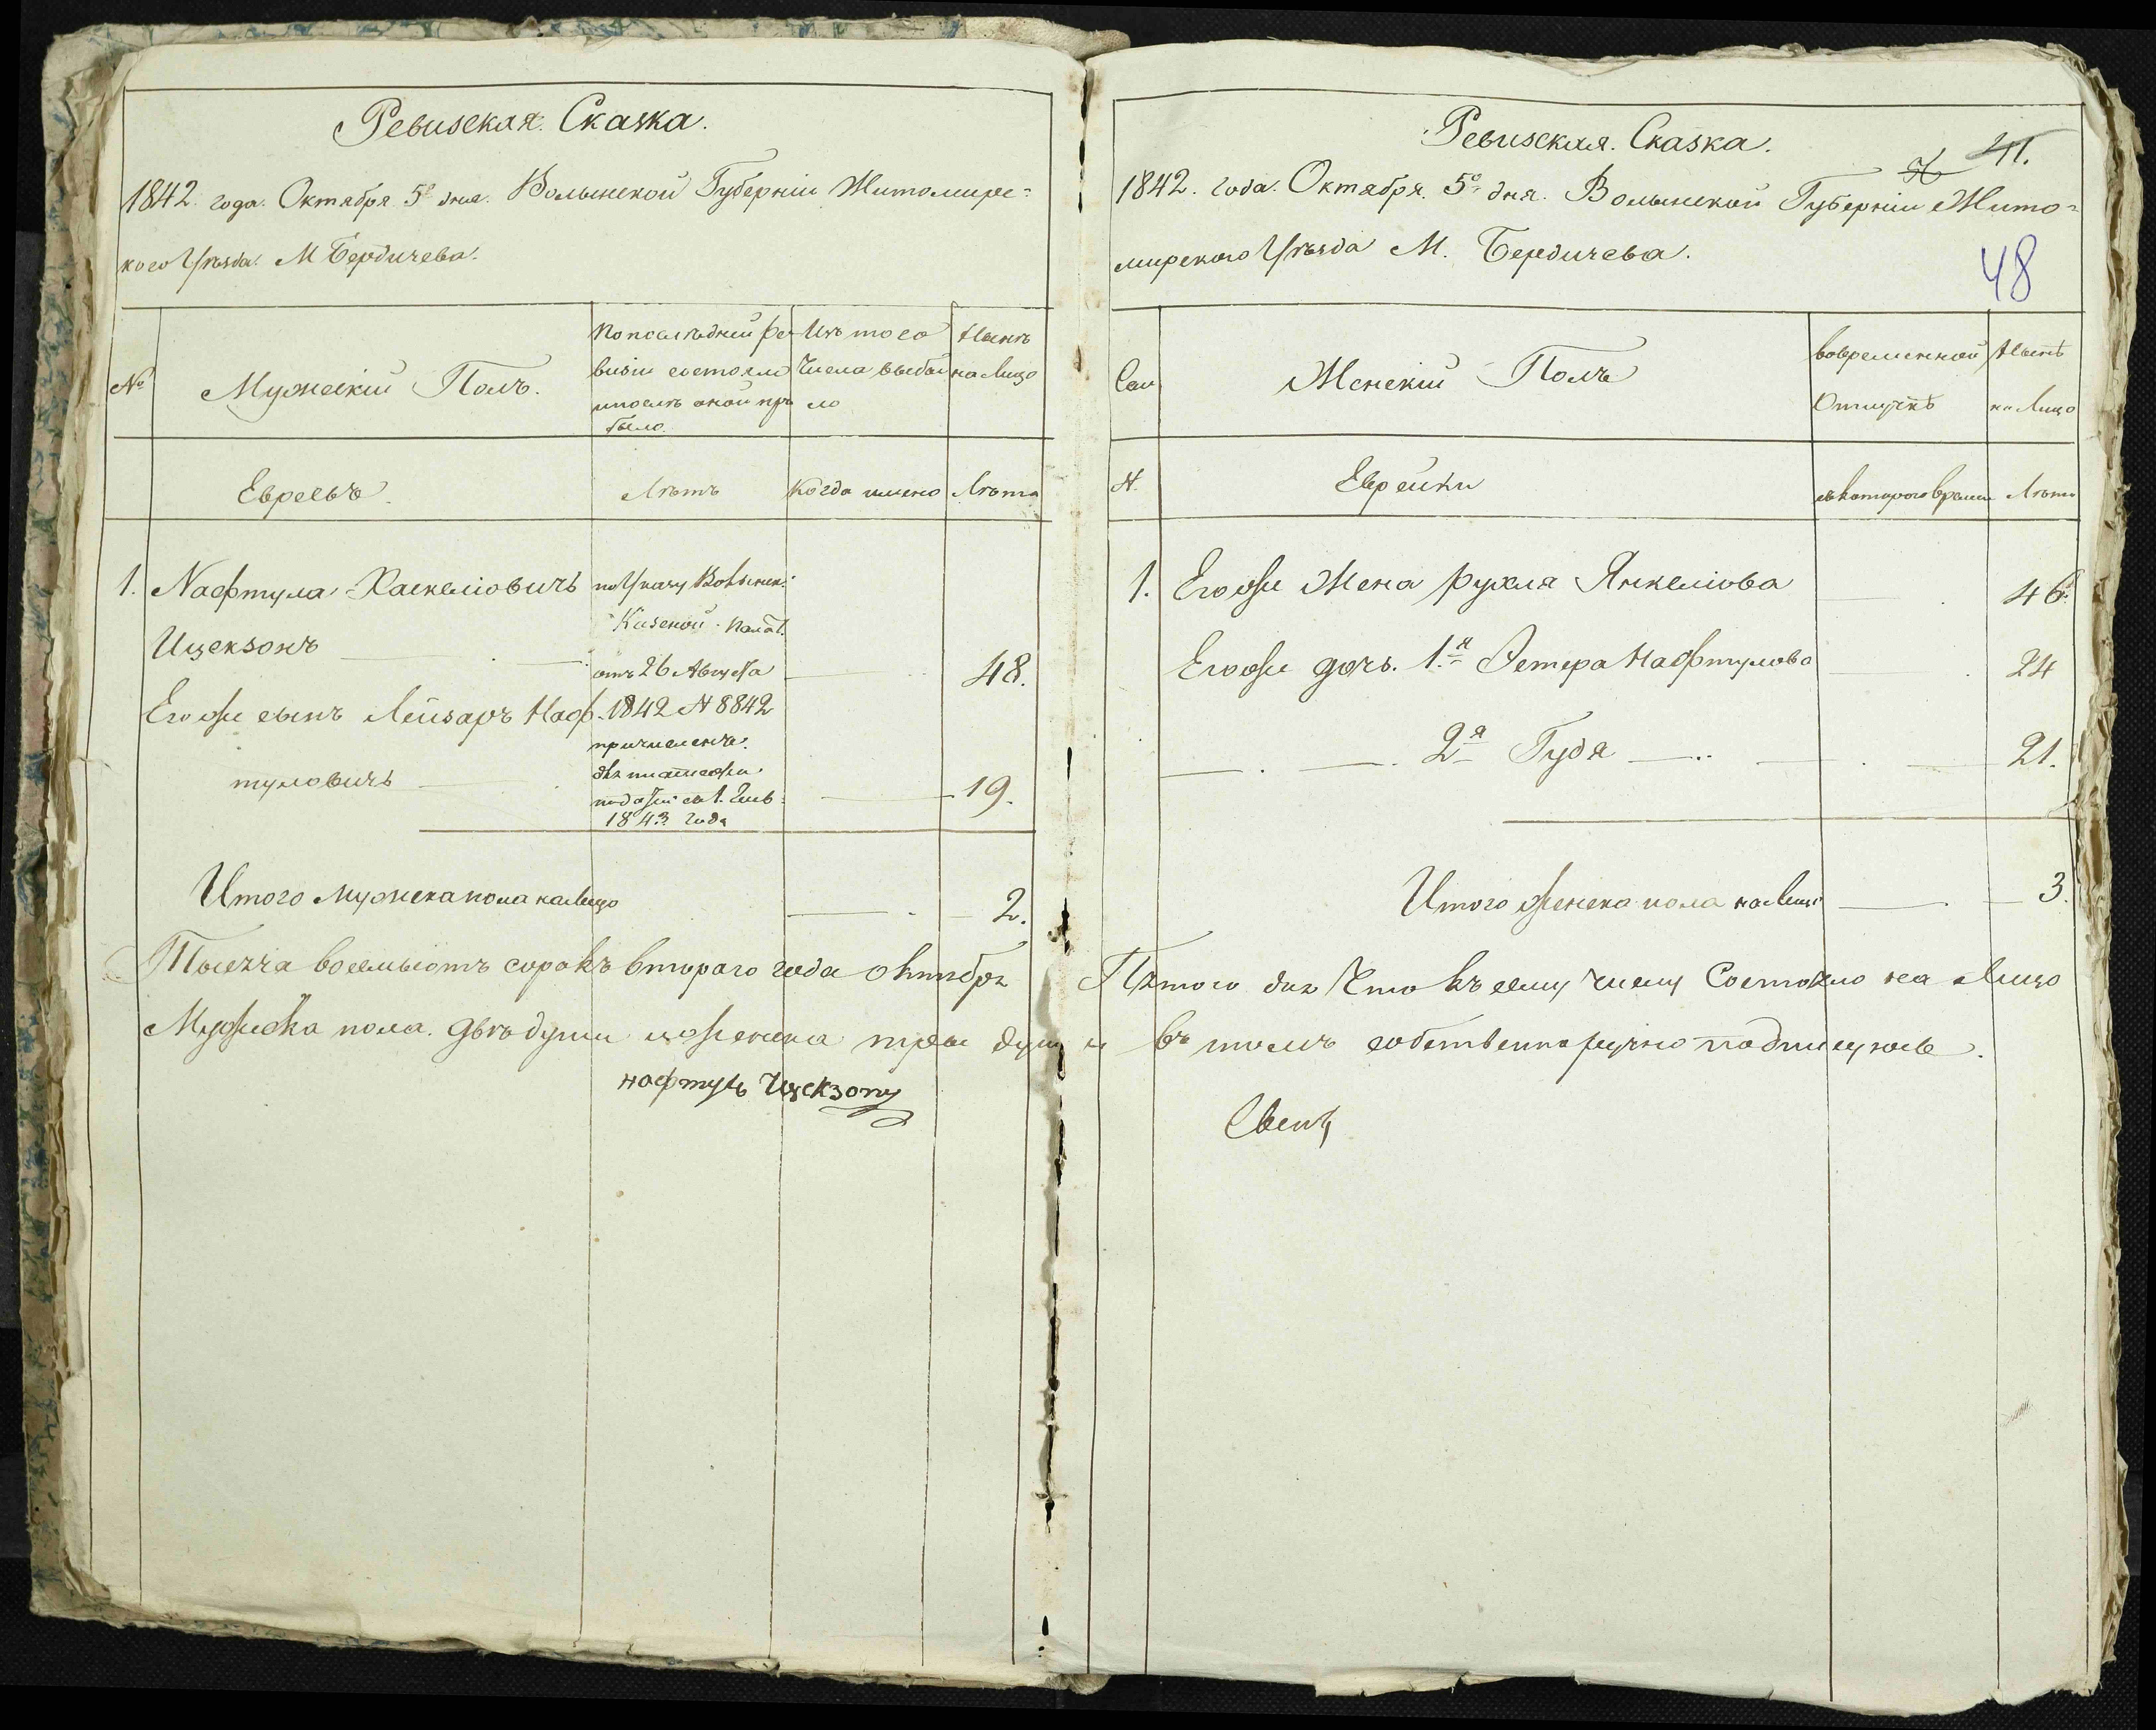 Ревизская. Сказка.
1842. года. Октября 5º дня. Волынской Губерніи Житомирс=
кого Уѣзда. М Бердичева.
№
Мужескій Полъ.
По последней ре
визіи состояло
ипослѣ оной пр
было.
Изъ того
Числа выбы
ло
Нынѣ
на Лицо
Евреевъ
Лѣтъ
Когда имено
Лѣта
1. Нафтула Хаскеліовичъ
Ицексонъ
48.
Его же сынъ Лейзаръ Наф-
туловичъ
19.
по Указу Волынск:
Казеной Палат.
отъ 26 Августа
1842 N 8842
причисленъ.
для платежа
податей съ 1. Генв:
1843 года
Итого мужеска пола налицо
2.
Тысяча восемьсотъ сорокъ втораго года октября
Мужеска пола. двѣ души и женска три души
нафтуль Ицексонъ
Ревизская. Сказка.
41.
1842. года. Октября. 5º дня. Волынской Губерніи Жито=
мирского Уѣзда М. Бердичева.
48
Женскій Полъ
вовременной
Отлучкѣ
Нынѣ
на Лицо
N.
Еврейки
съ котораго время
Лѣта
1. Егоже Жена рухля Янкеліова
46.
Егоже дочь. 1.я Эстера Нафтулова
24
2я Гудя
21.
Итого женска пола налицо
3.
Пятого дня Что къ сему числу Состояло на Лицо
въ томъ собственноручно подписуюсь.